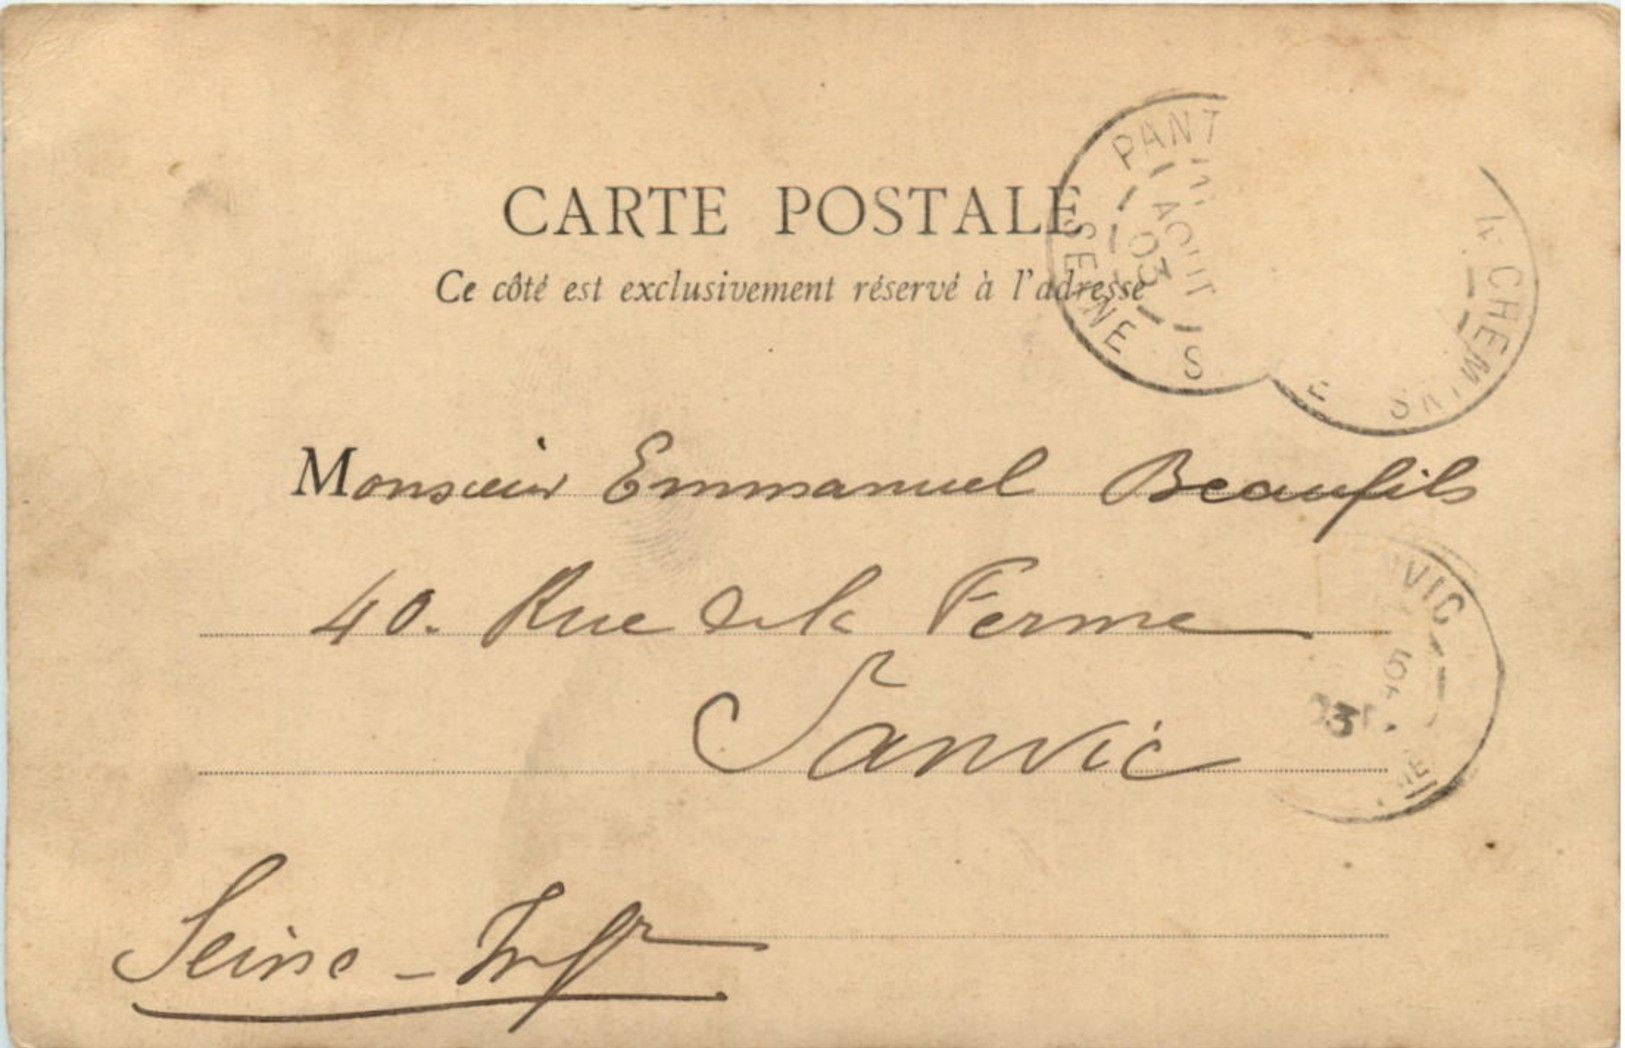 CARTE POSTALE
Ce côté est exclusivement réservé à l'adresse
PANT
AOUT
03
SEINE S
4 CHEMINS
E
Monsieur Emmanuel Beaufils
40. Rue de la Ferme
Sanvic
VIC
5
3
Seine-Infr